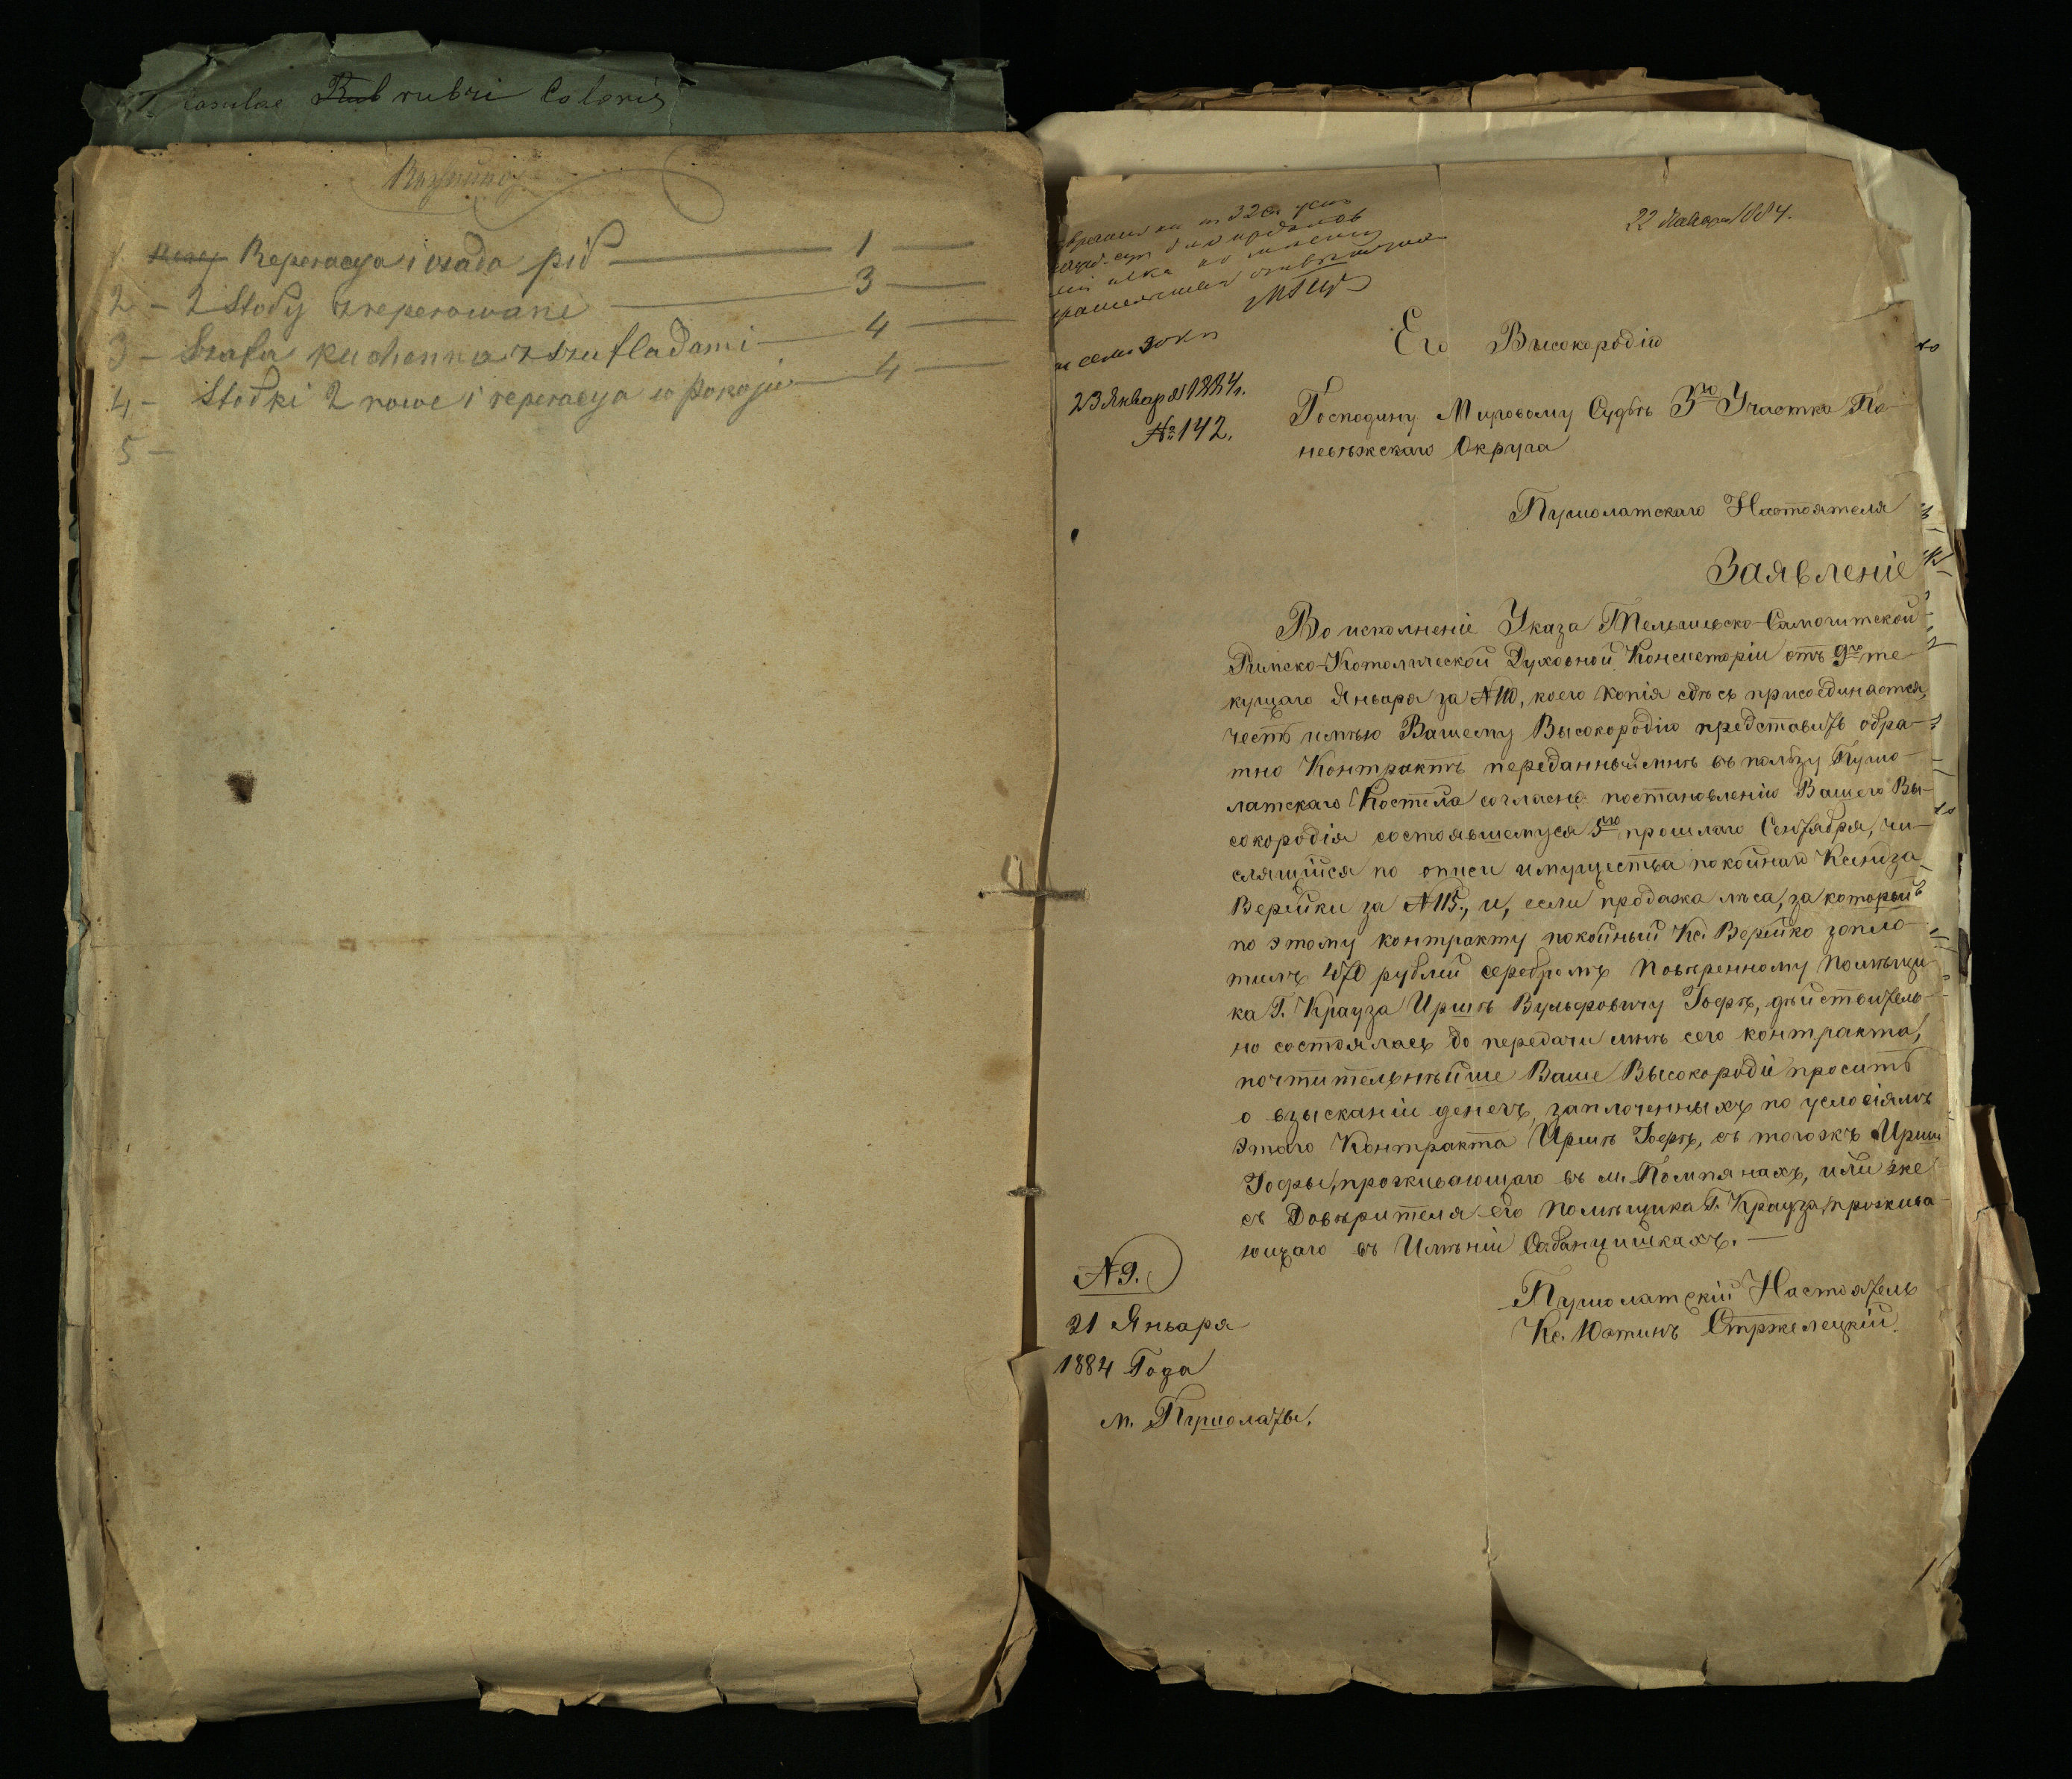 Casulae Rub rubri Coloris
1 Reperacya i osada pił — 1 —
2 – 2 Stoły zreperowane — 3 —
3 – Szafa kuchenna z szufladami — 4 —
4 – Stołki 2 nowe i reperacya w pokoju — 4 —
5 –
22 Января 1884.
23 Января 1884 г.
№ 142.
Его Высокородію
Господину Мировому Судьѣ 3го Участка По-
невѣжскаго Округа
Пушолатскаго Настоятеля
Заявленіе
Во исполненіе Указа Тельшевско-Самогитской
Римско-Католической Духовной Консисторіи отъ 9го те-
кущаго Января за № 110, коего копія здѣсь присоединяется,
честь имѣю Вашему Высокородію представить обра-
тно Контрактъ переданный мнѣ въ пользу Пушо-
латскаго Костела согласно постановленію Вашего Вы-
сокородія состоявшемуся 5го прошлаго Сентября, чи-
слящійся по описи имущества покойнаго Ксендза
Верейки за № 115., и, если продажа лѣса, за который
по этому контракту покойный Кс. Верейко запла-
тилъ 470 рублей серебромъ повѣренному помѣщи-
ка Г. Крауза Иршѣ Вульфовичу Гофѣ, дѣйствитель-
но состоялась до передачи мнѣ сего контракта,
почтительнѣйше Ваше Высокородіе просить
о взысканіи денегъ, заплоченныхъ по условіямъ
этого Контракта Иршѣ Гофѣ, съ тогожъ Ирши
Гофы, проживающаго въ м. Помпянахъ, или же
съ Довѣрителя его помѣщика Г. Крауза, прожива-
ющаго въ Имѣніи Сабанцишкахъ. —
Пушолатскій Настоятель
Кс. Юстинъ Стржелецкій.
№ 9.
21 Января
1884 Года
м. Пушолаты.